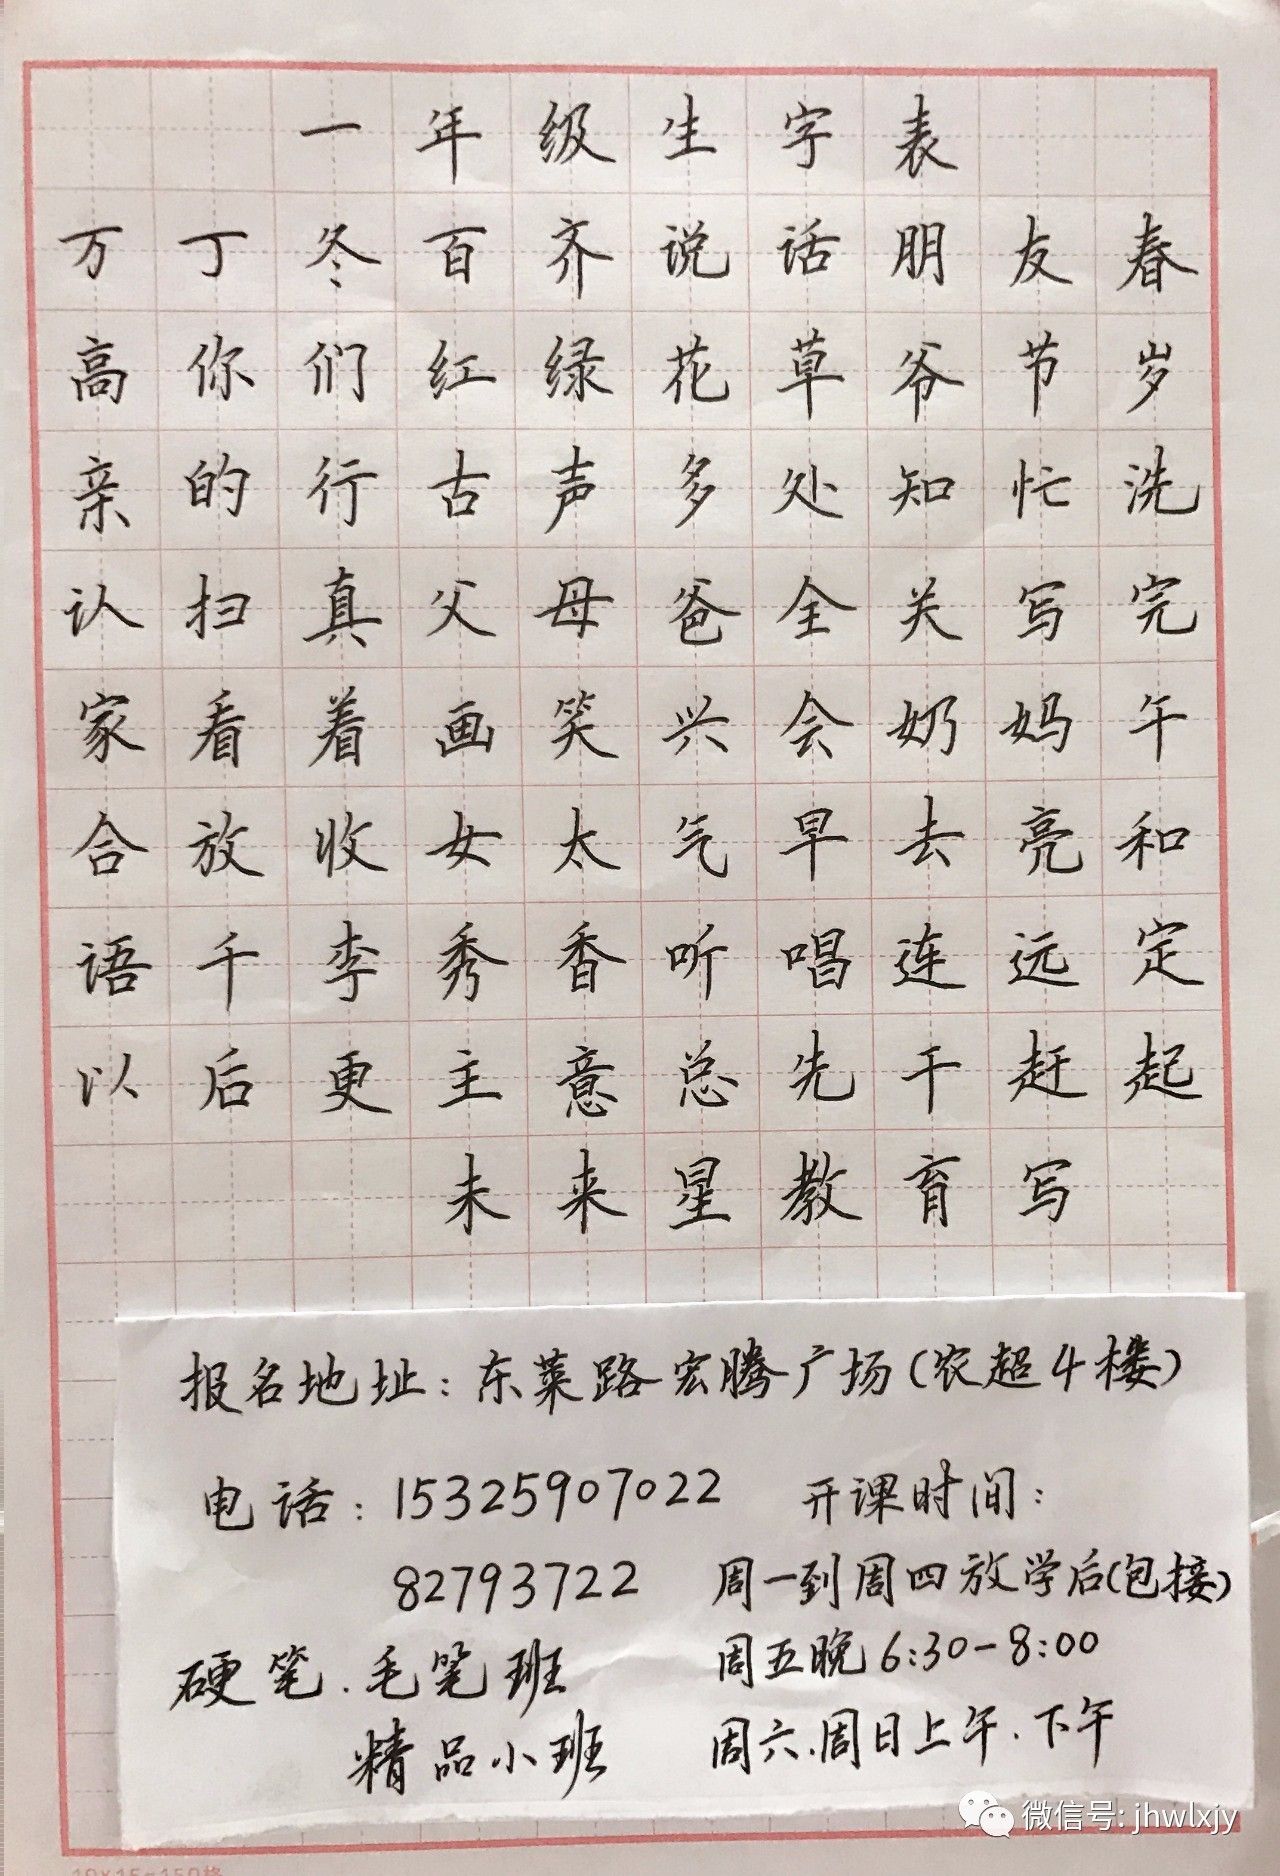 一年级生字表
万丁冬百齐说话朋友春
高你们红绿花草爷节岁
亲的行古声多处知忙洗
认扫真父母爸全关写完
家看着画笑兴会奶妈午
合放收女太气早去亮和
语千李秀香听唱连远定
以后更主意总先干赶起
未来星教育写
报名地址：东莱路宏腾广场(农超4楼)
电话：15325907022 开课时间：
82793722 周一到周四放学后(包接)
硬笔.毛笔班 周五晚6:30-8:00
精品小班 周六.周日上午.下午
微信号: jhwlxjy
19×15=150格